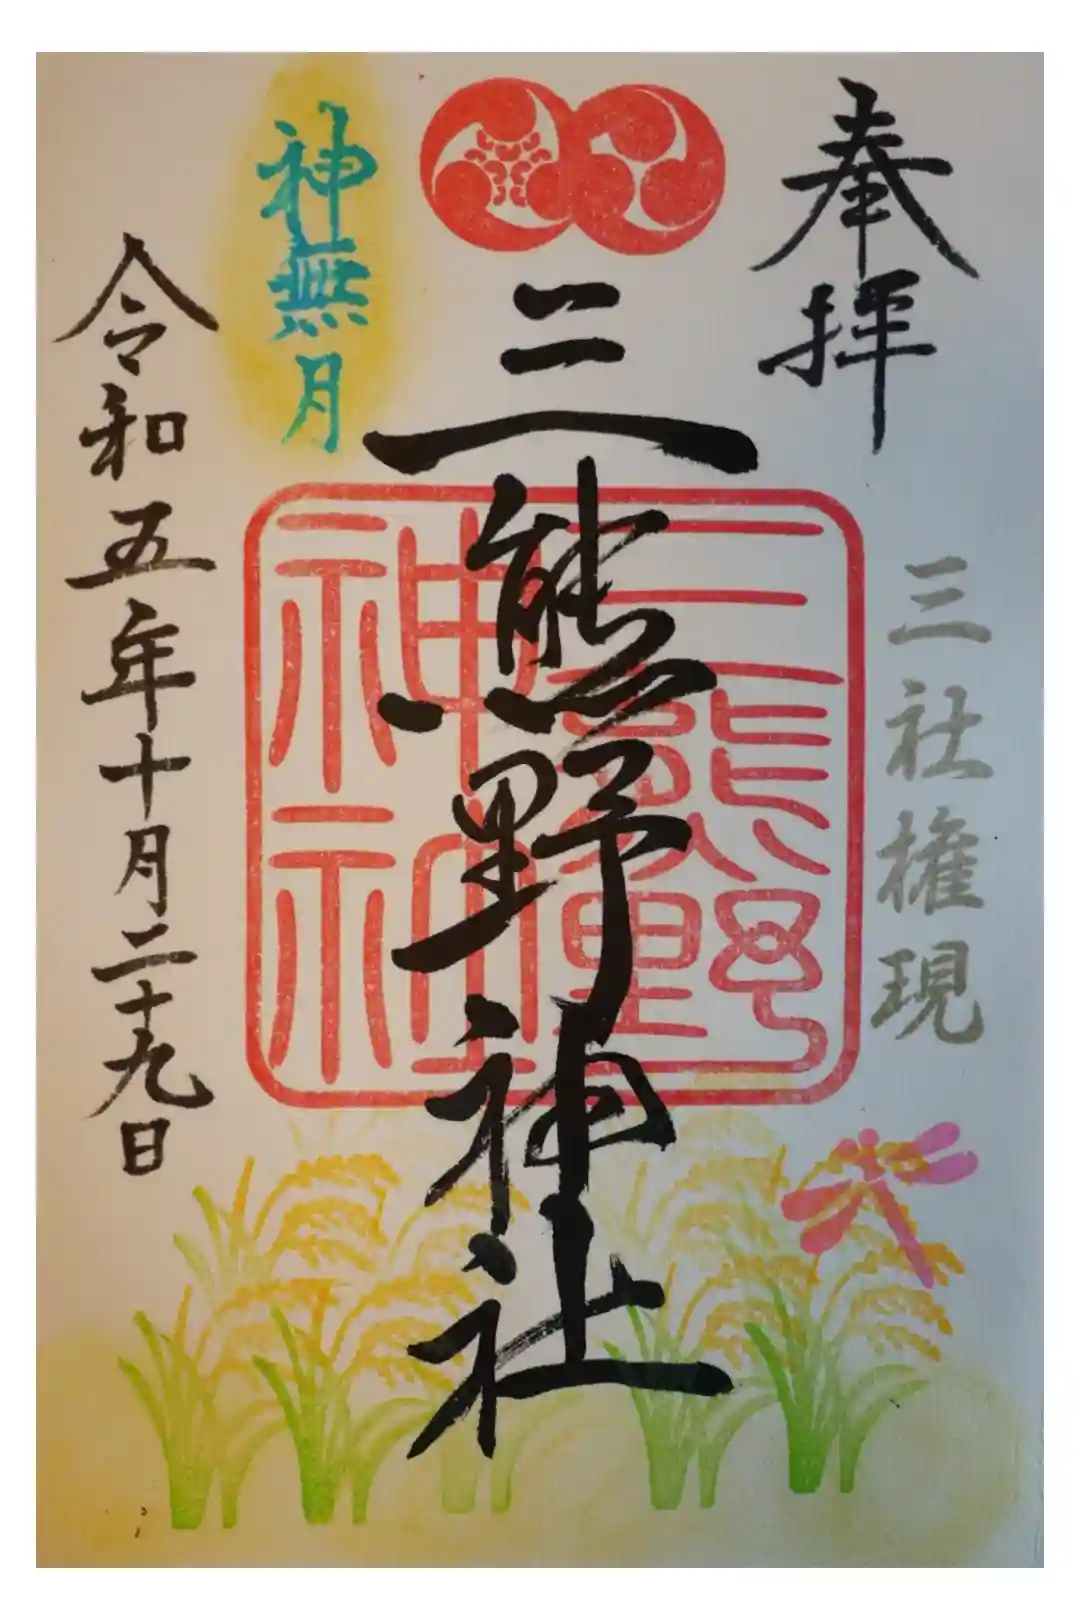 奉拝
三社権現
三熊野神社
三熊野
神社
神無月
令和五年十月二十九日